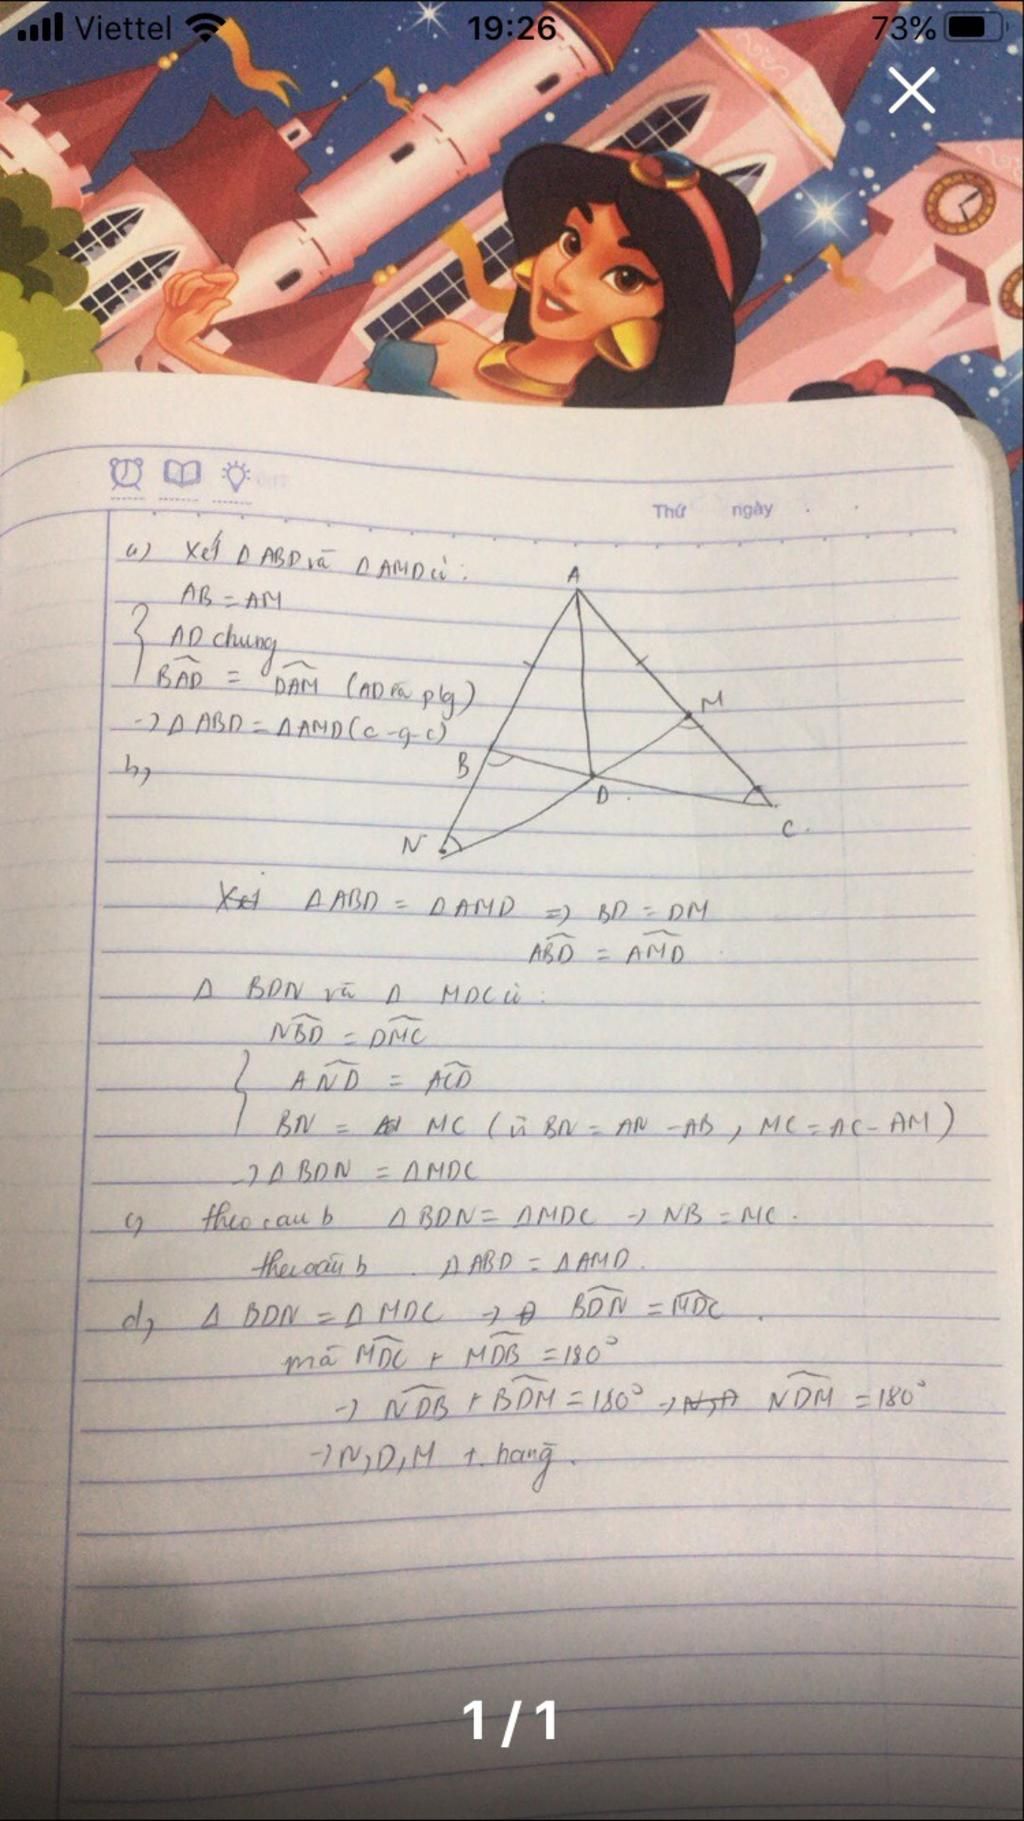 Viettel 19:26 73%
Thứ ngày
a) Xét Δ ABD và Δ AMD có :
AB = AM
AD chung
BAD = DAM (AD là p/g)
→ Δ ABD = Δ AMD (c-g-c)
b,
A
M
B
D
C
N
Xét Δ ABD = Δ AMD => BD = DM
ABD = AMD
Δ BDN và Δ MDC có :
NBD = DMC
AND = ACD
BN = MC (vì BN = AN - AB , MC = AC - AM )
→ Δ BDN = Δ MDC
c, theo câu b Δ BDN = Δ MDC → NB = MC .
theo câu b . Δ ABD = Δ AMD .
d, Δ BDN = Δ MDC → BDN = MDC .
mà MDC + MDB = 180°
→ NDB + BDM = 180° → NDM = 180°
→ N, D, M t. hàng .
1 / 1